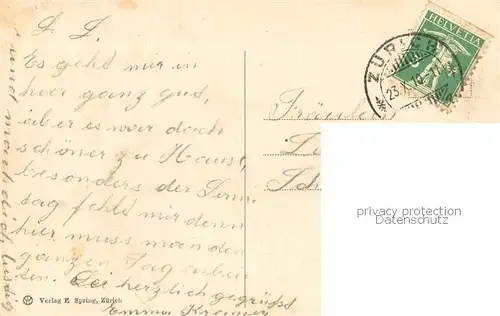 L. L.
Es gehd mir in
hier ganz gud,
aber es war doch
schöner zu Hause,
besonders der Sonn
tag fehld mir denn
hier muss man den
ganzen Tag arbei
ten. Sei herzlich gegrüsst
Emma
und mach dich lustig
HELVETIA
ZÜRICH
Fräulein
privacy protection
Datenschutz
Verlag E. Spring, Zürich